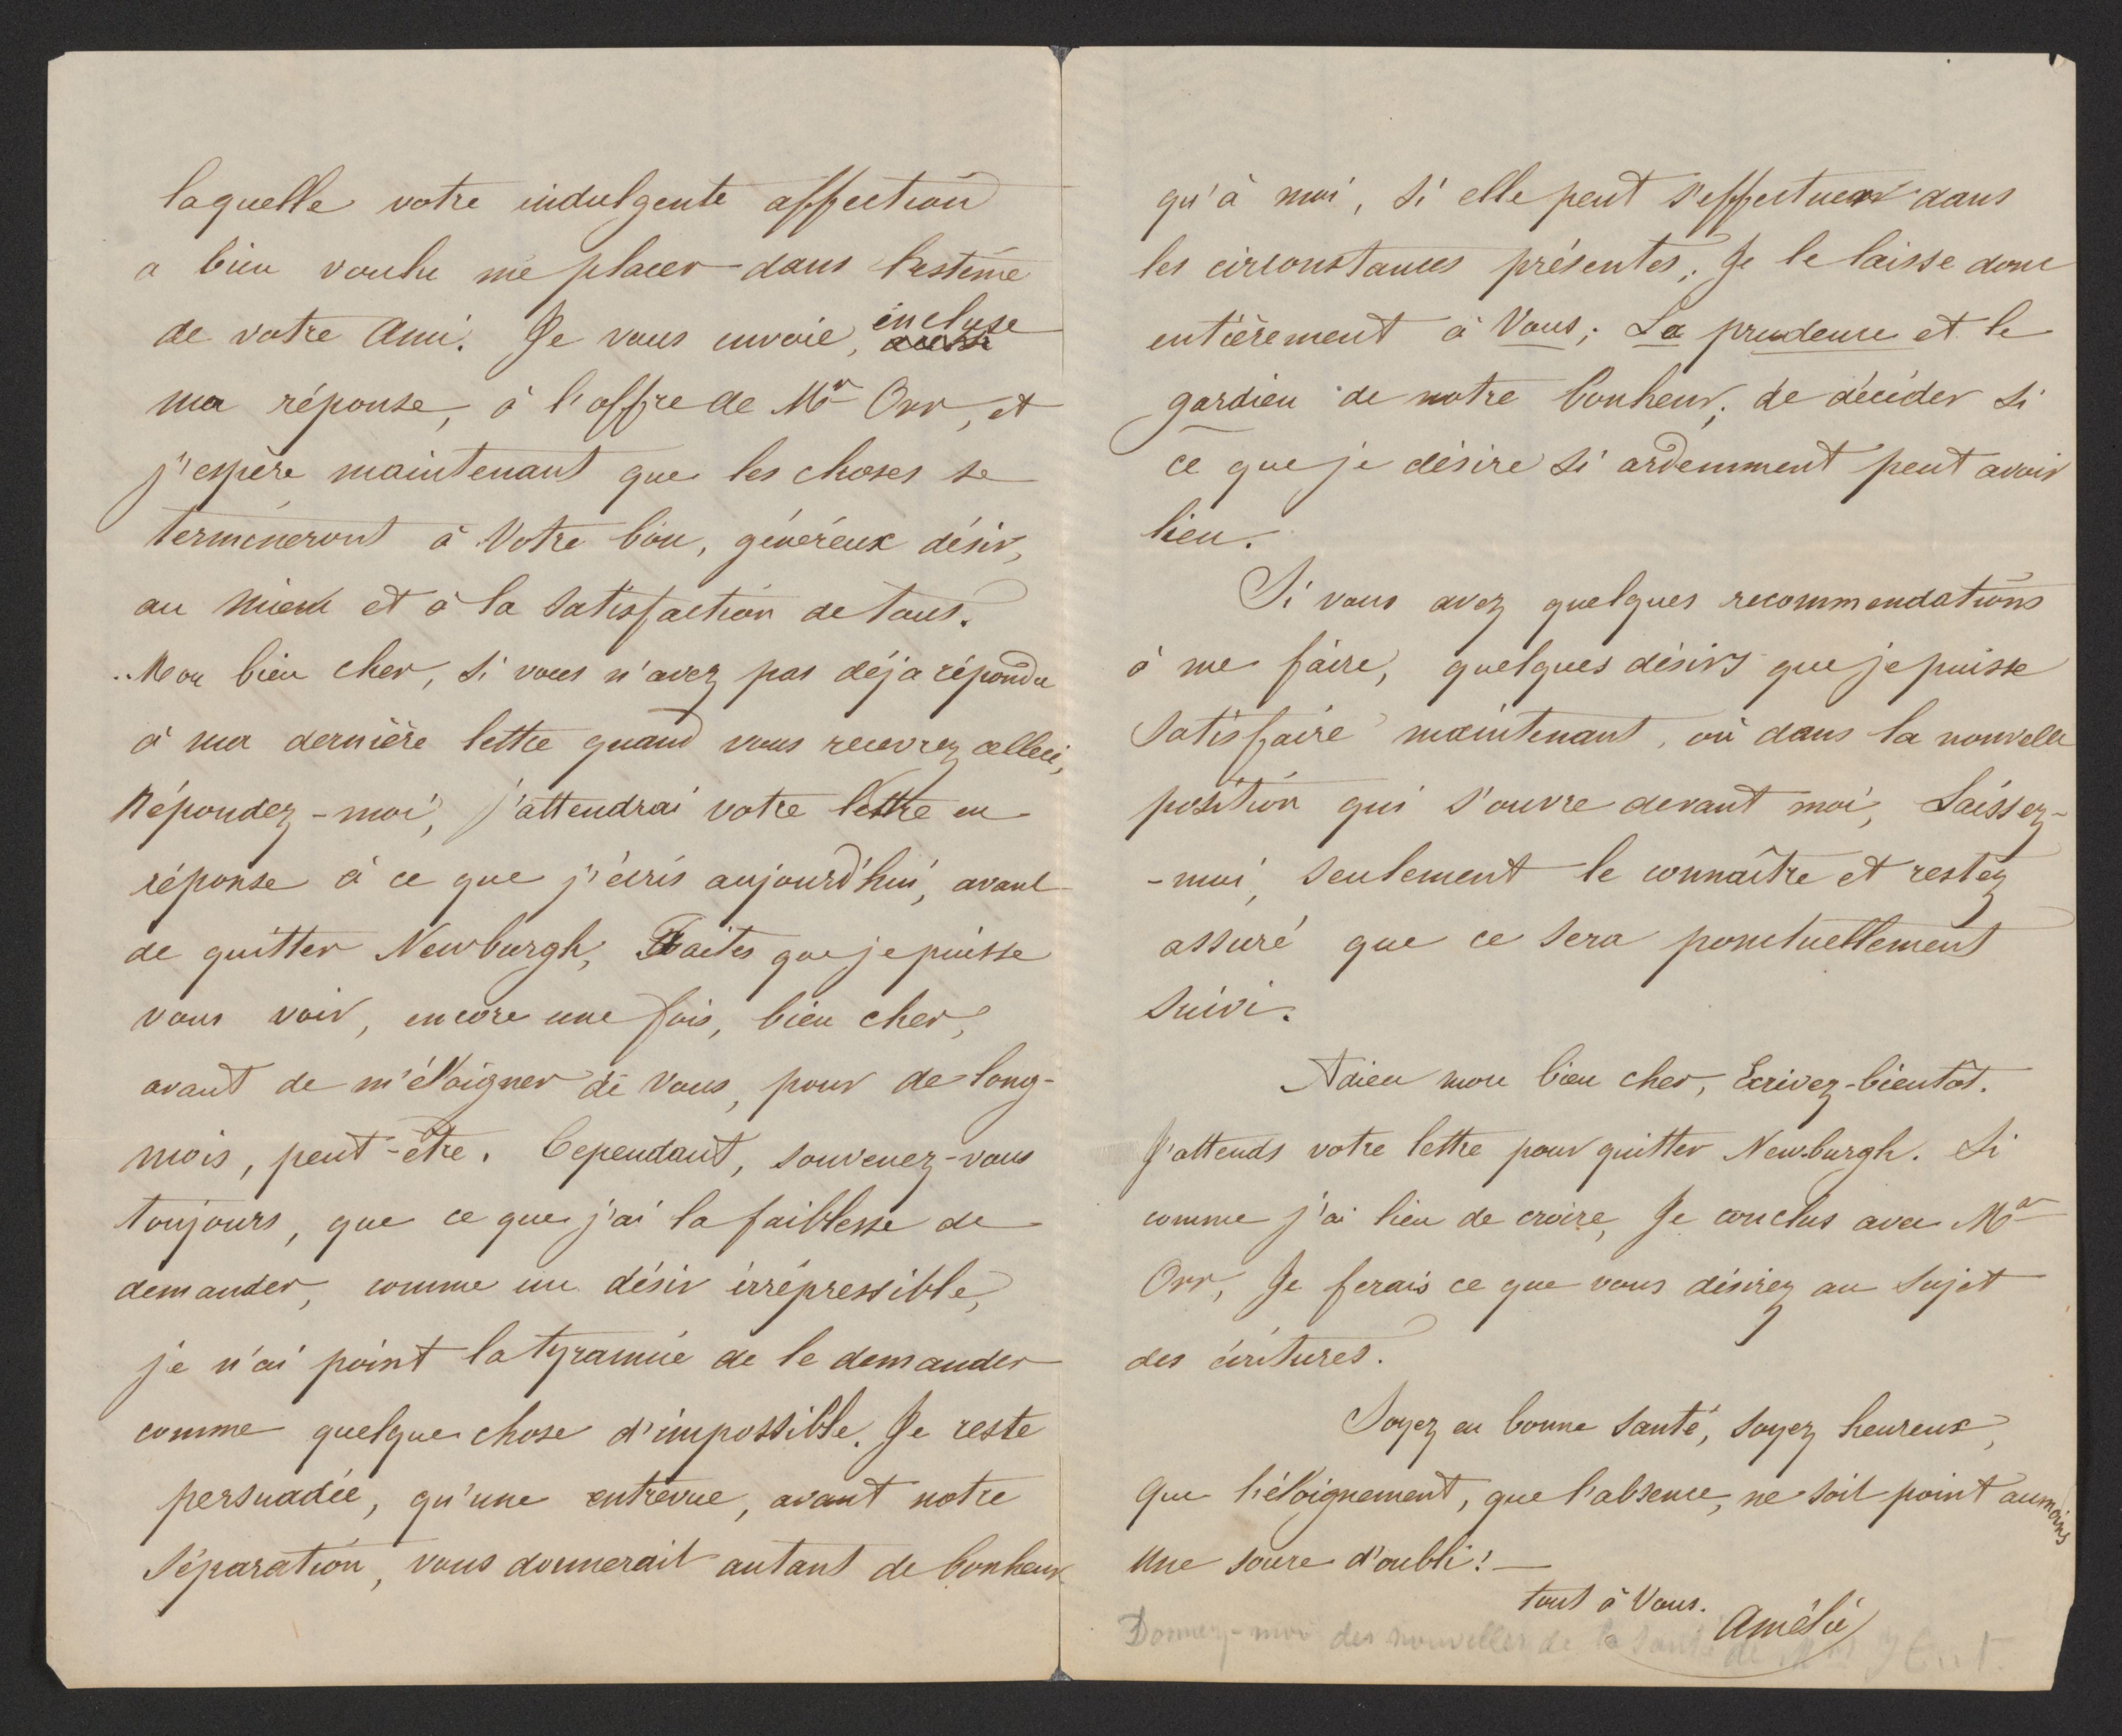 laquelle votre indulgente affection
a bien voulu me placer dans l'estime
de votre Ami. Je vous envoie, incluse
ma réponse, à l'offre de Mr Orr, et
j'espère maintenant que les choses se
termineront à Votre bon, généreux désir,
au mien et à la satisfaction de tous.
Mon bien cher, si vous n'avez pas déja répondu
à ma dernière lettre quand vous recevrez celleci,
Répondez-moi, j'attendrai votre lettre en
réponse à ce que j'écris aujourd'hui, avant
de quitter Newburgh, Faites que je puisse
vous voir, encore une fois, bien cher,
avant de m'éloigner de Vous, pour de long-
mois, peut-être. Cependant, souvenez-vous
toujours, que ce que j'ai la faiblesse de
demander, comme un désir irrépressible,
je n'ai point la tyrannie de le demander
comme quelque chose d'impossible. Je reste
persuadée, qu'une entrevue, avant notre
Séparation, vous donnerait autant de bonheur
qu'à moi, si elle peut s'effectuer dans
les circonstances présentes. Je le laisse donc
entièrement à Vous; La prudence et le
gardien de notre bonheur, de décider si
ce que je désire si ardemment peut avoir
lieu.
Si vous avez quelques recommendations
à me faire, quelques désirs que je puisse
Satisfaire maintenant, où dans la nouvelle
position qui s'ouvre devant moi, Laissez-
-moi, seulement le connaître et restez
assuré que ce sera ponctuellement
suivi.
Adieu mon bien cher, Ecrivez-bientôt.
J'attends votre lettre pour quitter Newburgh. Si
comme j'ai lieu de croire, Je conclus avec Mr
Orr, Je ferais ce que vous désirez au sujet
des écritures.
Soyez en bonne santé, soyez heureux,
Que l'éloignement, que l'absence, ne soit point aumoins
Une source d'oubli! —
tout à Vous.
Amélie
Donnez-moi des nouvelles de la santé de